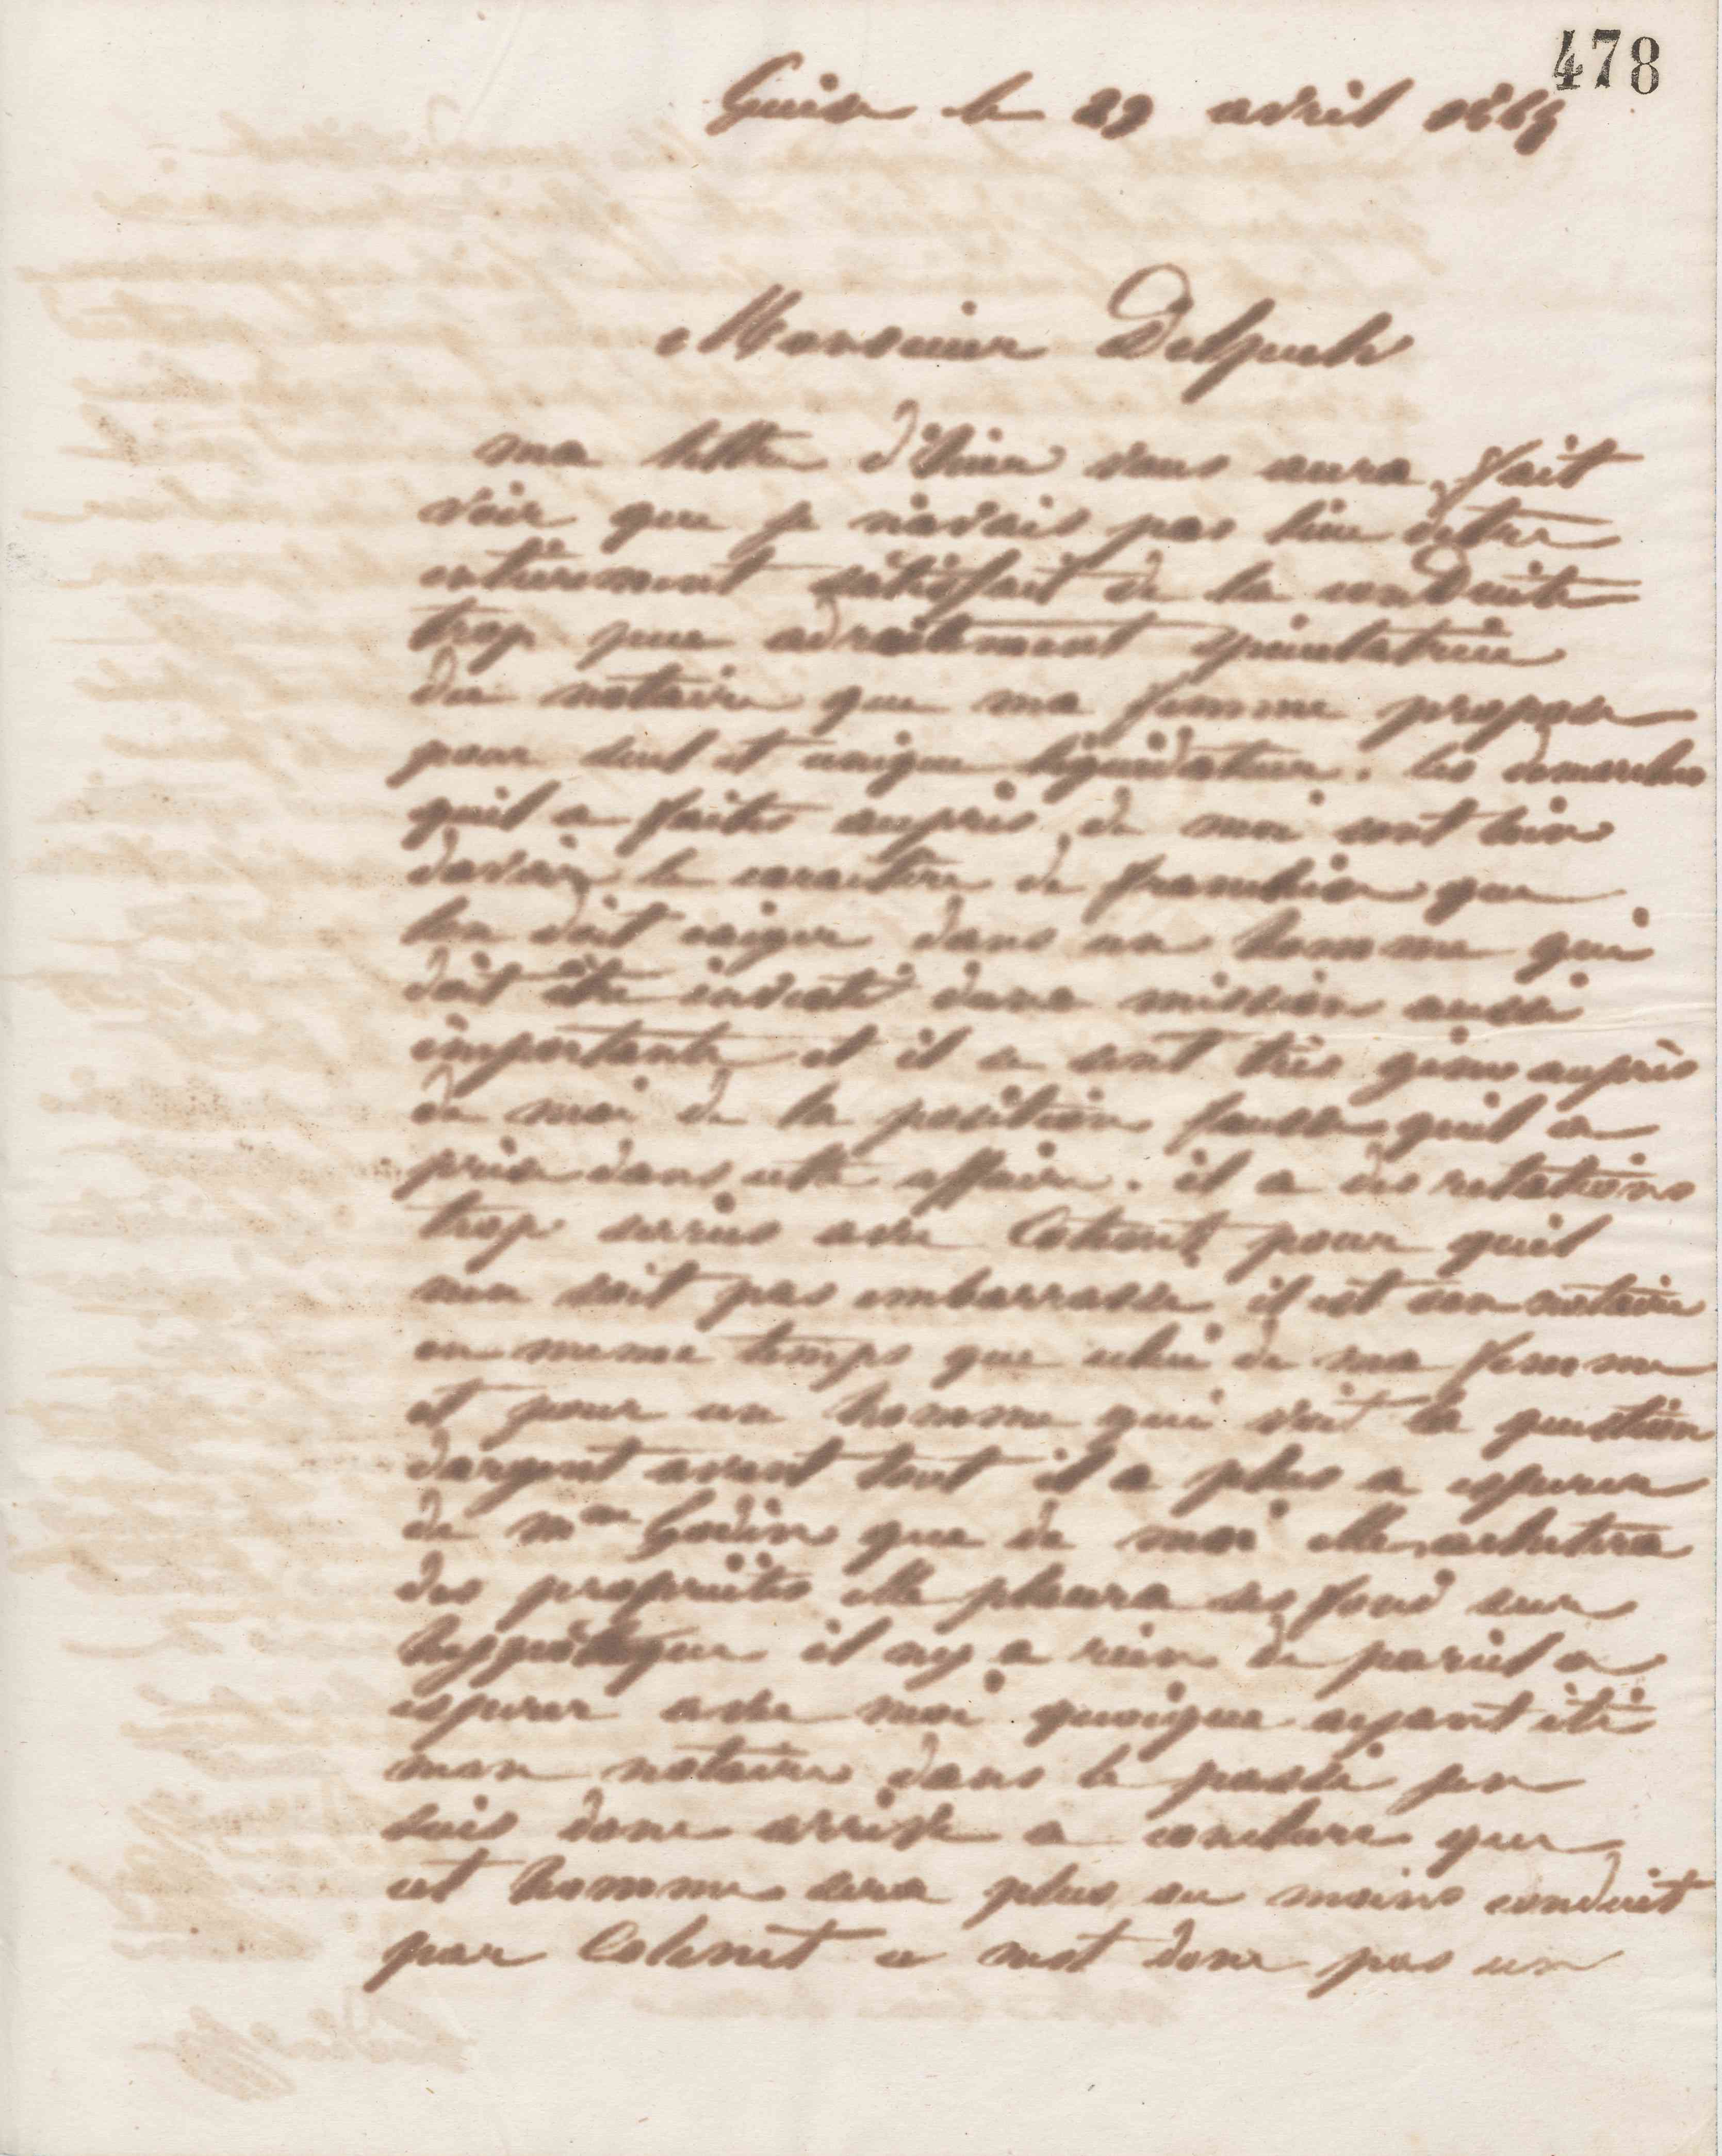 478
Guise le 29 avril 186
Monsieur Delpech
ma lettre d'hier vous aura fait
voir que je n'avais pas lieu detre
entièrement satisfait de la conduite
trop peu adroitement spéculatrice
du notaire que ma femme propose
pour seul et unique liquidateur. les demarches
quil a faites auprès de moi sont loin
davoir le caractère de franchise que
lon doit exiger dans un homme qui
doit être investi dune mission aussi
importante et il se sent très gêné auprès
de moi de la position fausse quil a
prise dans cette affaire. il a des relations
trop serrées avec Colenet pour quil
nen soit pas embarrassé il est son notaire
en meme temps que celui de ma femme
et pour un homme qui voit la question
dargent avant tout il a plus a esperer
de Mme Godin que de moi elle achetera
des propriétés elle placera ses fond sur
hyppothèque il ny a rien de pareil a
esperer avec moi quoique ayant été
mon notaire dans le passé jen
suis donc arrivé a conclure que
cet homme sera plus ou moins conduit
par Colenet ce nest donc pas un